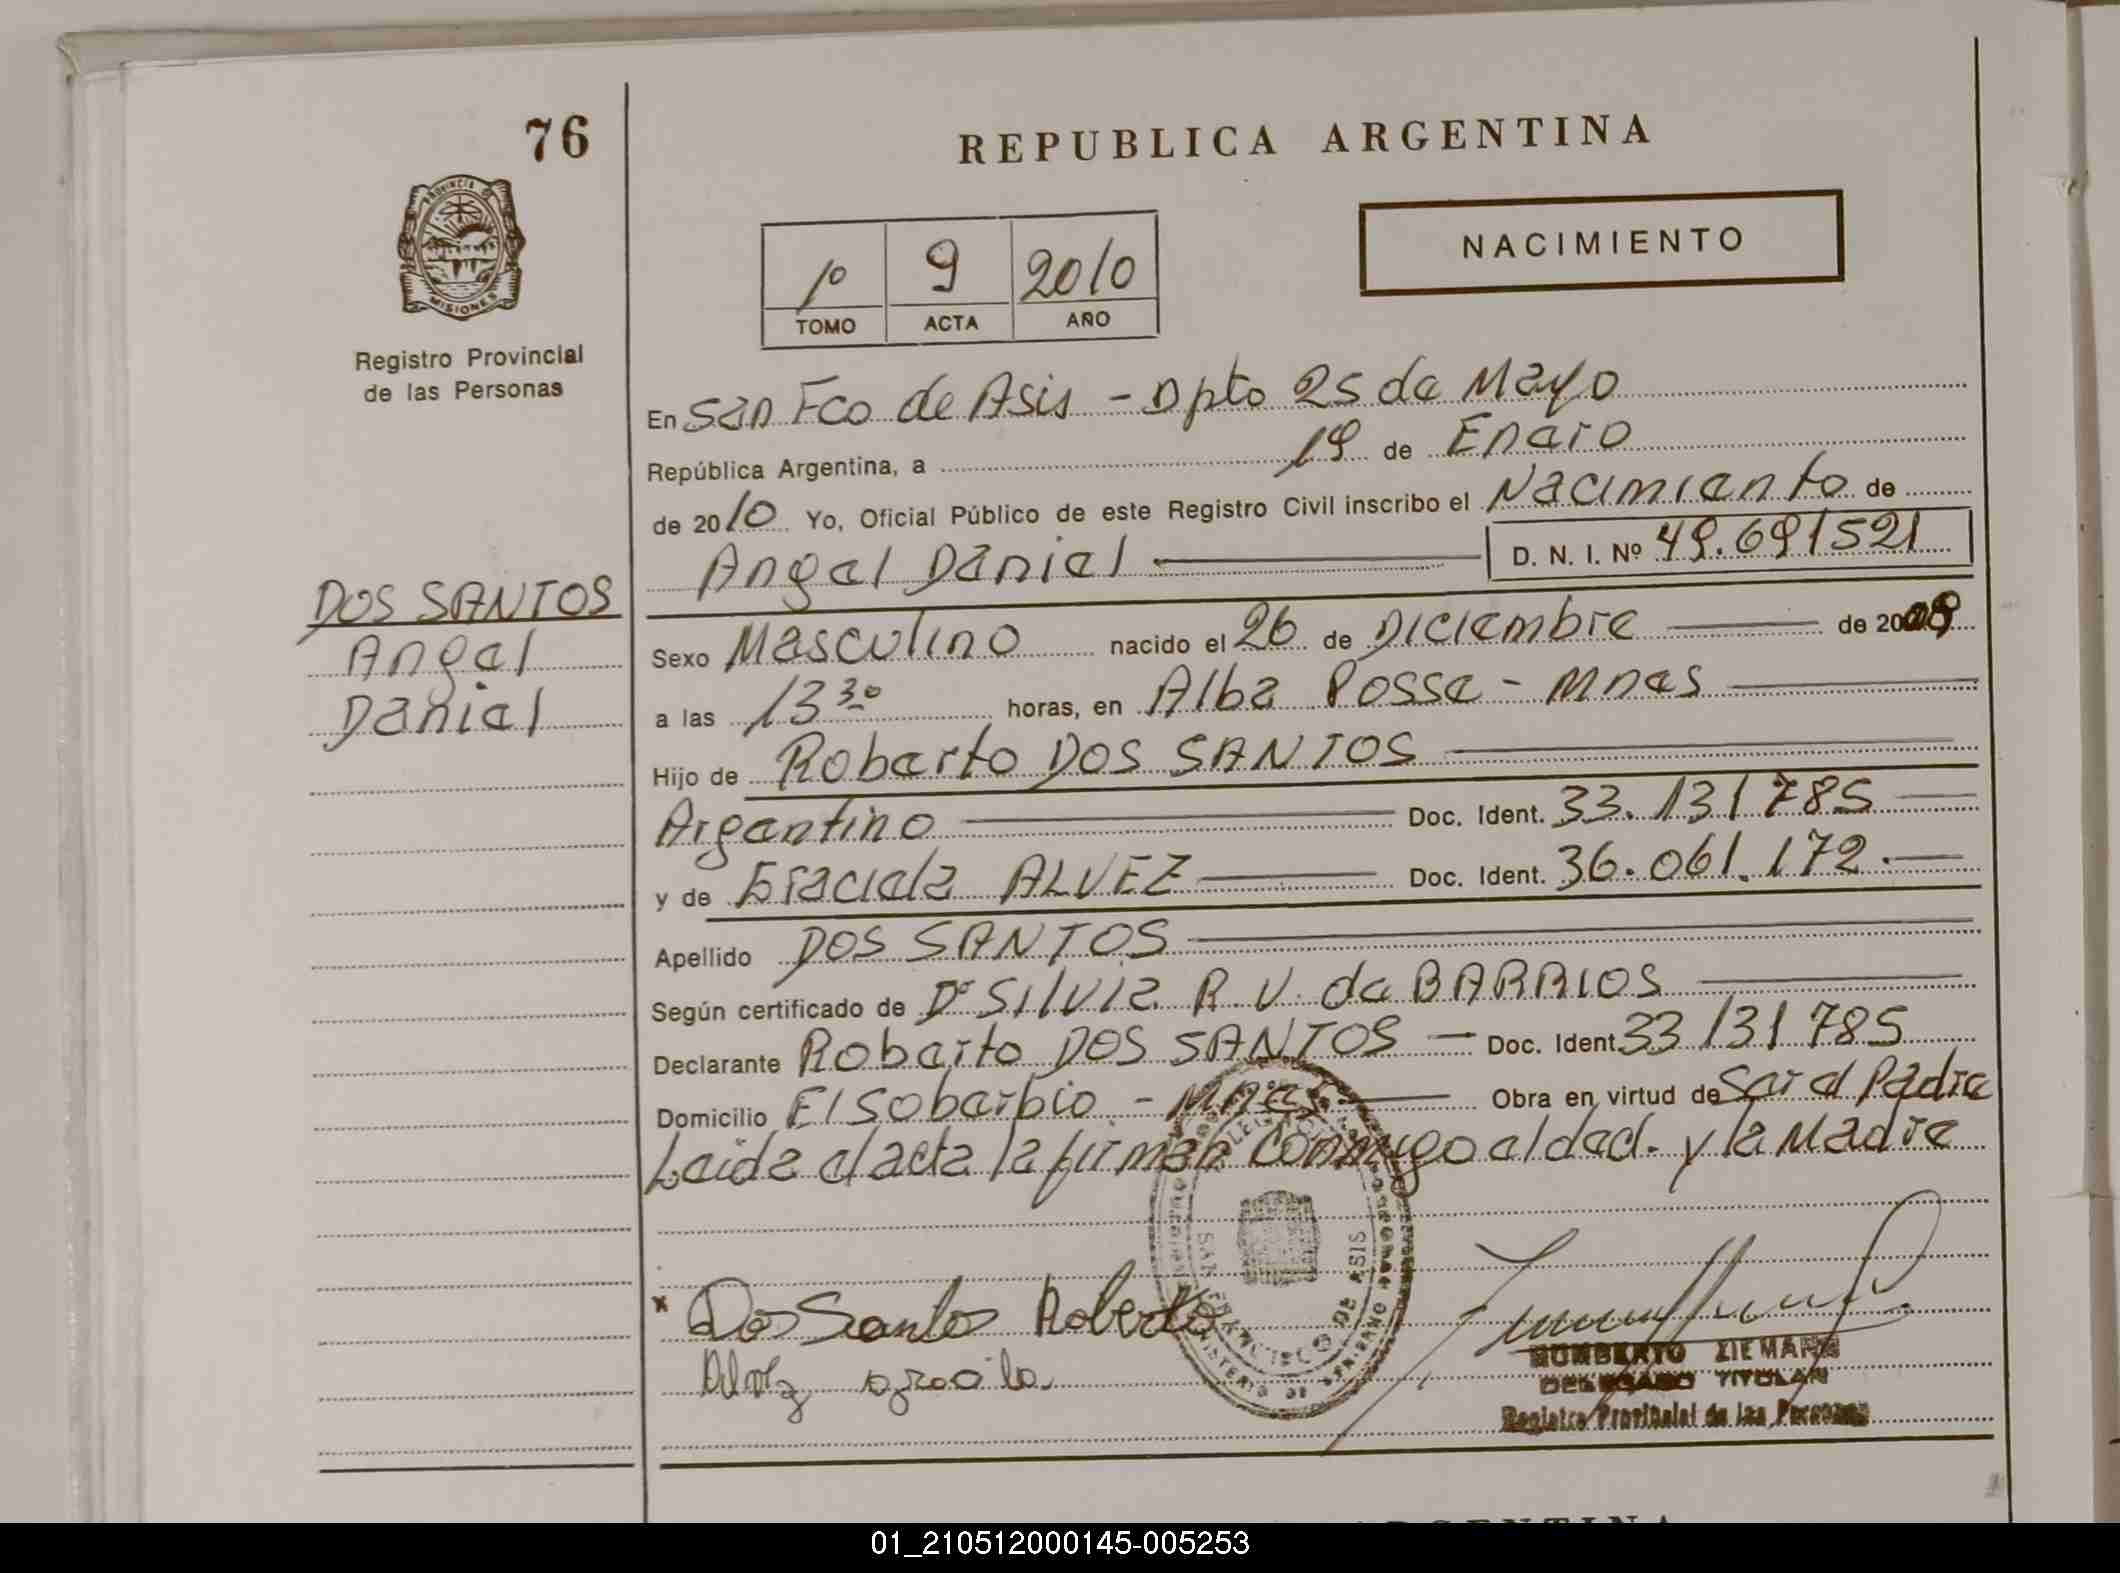 76
REPUBLICA ARGENTINA
PROVINCIA DE
MISIONES
Registro Provincial
de las Personas
NACIMIENTO
1º 9 2010
TOMO ACTA AÑO
En San Fco de Asis - Dpto 25 de Mayo
República Argentina, a 19 de Enero
de 2010 Yo, Oficial Público de este Registro Civil inscribo el Nacimiento de
Angel Daniel D. N. I. Nº 49.691521
DOS SANTOS
Angel
Daniel
Sexo Masculino nacido el 26 de Diciembre de 2009
a las 13 30 horas, en Alba Posse - Mnes
Hijo de Roberto DOS SANTOS
Argentino Doc. Ident. 33.131785
y de Graciela ALVEZ Doc. Ident. 36.061.172.
Apellido DOS SANTOS
Según certificado de Dª Silvia R.V. de BARRIOS
Declarante Roberto DOS SANTOS Doc. Ident. 33131785
Domicilio El Soberbio - Mnes Obra en virtud de Ser el Padre
Leida el acta la firman conmigo el decl. y la Madre
x Dos Santos Roberto
Alvez
SAN FRANCISCO DE ASIS
HUMBERTO ZIEMANN
DELEGADO TITULAR
Registro Provincial de las Personas
01_210512000145-005253